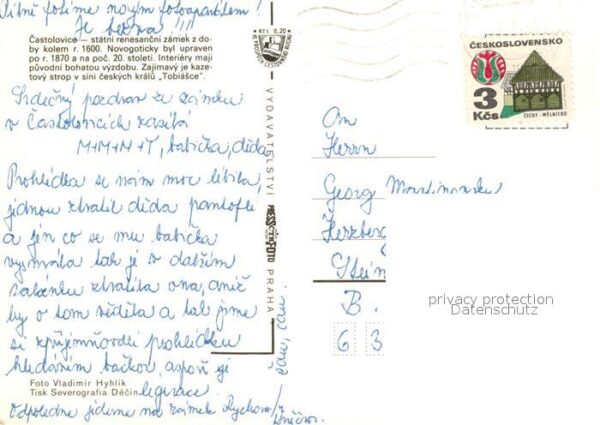 Pilně fotíme novým fotoaparátem!
Je bezva!!!
Častolovice — státní renesanční zámek z do-
by kolem r. 1600. Novogoticky byl upraven
po r. 1870 a na poč. 20. století. Interiéry mají
původní bohatou výzdobu. Zajímavý je kaze-
tový strop v síni českých králů „Tobiášce".
Srdečný pozdrav ze zámku
v Častolovicích zasílá
M+M+M+T, babička, děda
Prohlídka se nám moc líbila,
jednou ztratil děda pantofle
a jen co se mu babička
vysmála tak je v dalším
salónku ztratila ona, aniž
by o tom věděla a tak jsme
si zpříjemňovali prohlídku
hledáním bačkor, aspoň je
legrace.
Foto Vladimír Hyhlík
Tisk Severografia Děčín
Odpoledne jedeme na zámek Rychnov/
Kněžnou.
Kčs 0,20
VYDAVATELSTVÍ
PRESSFOTO
PRAHA
ČESKOSLOVENSKO
3
Kčs
ČECHY - MĚLNICKO
An
Herrn
Georg
Herzberg
Stein
B.
6 3
privacy protection
Datenschutz